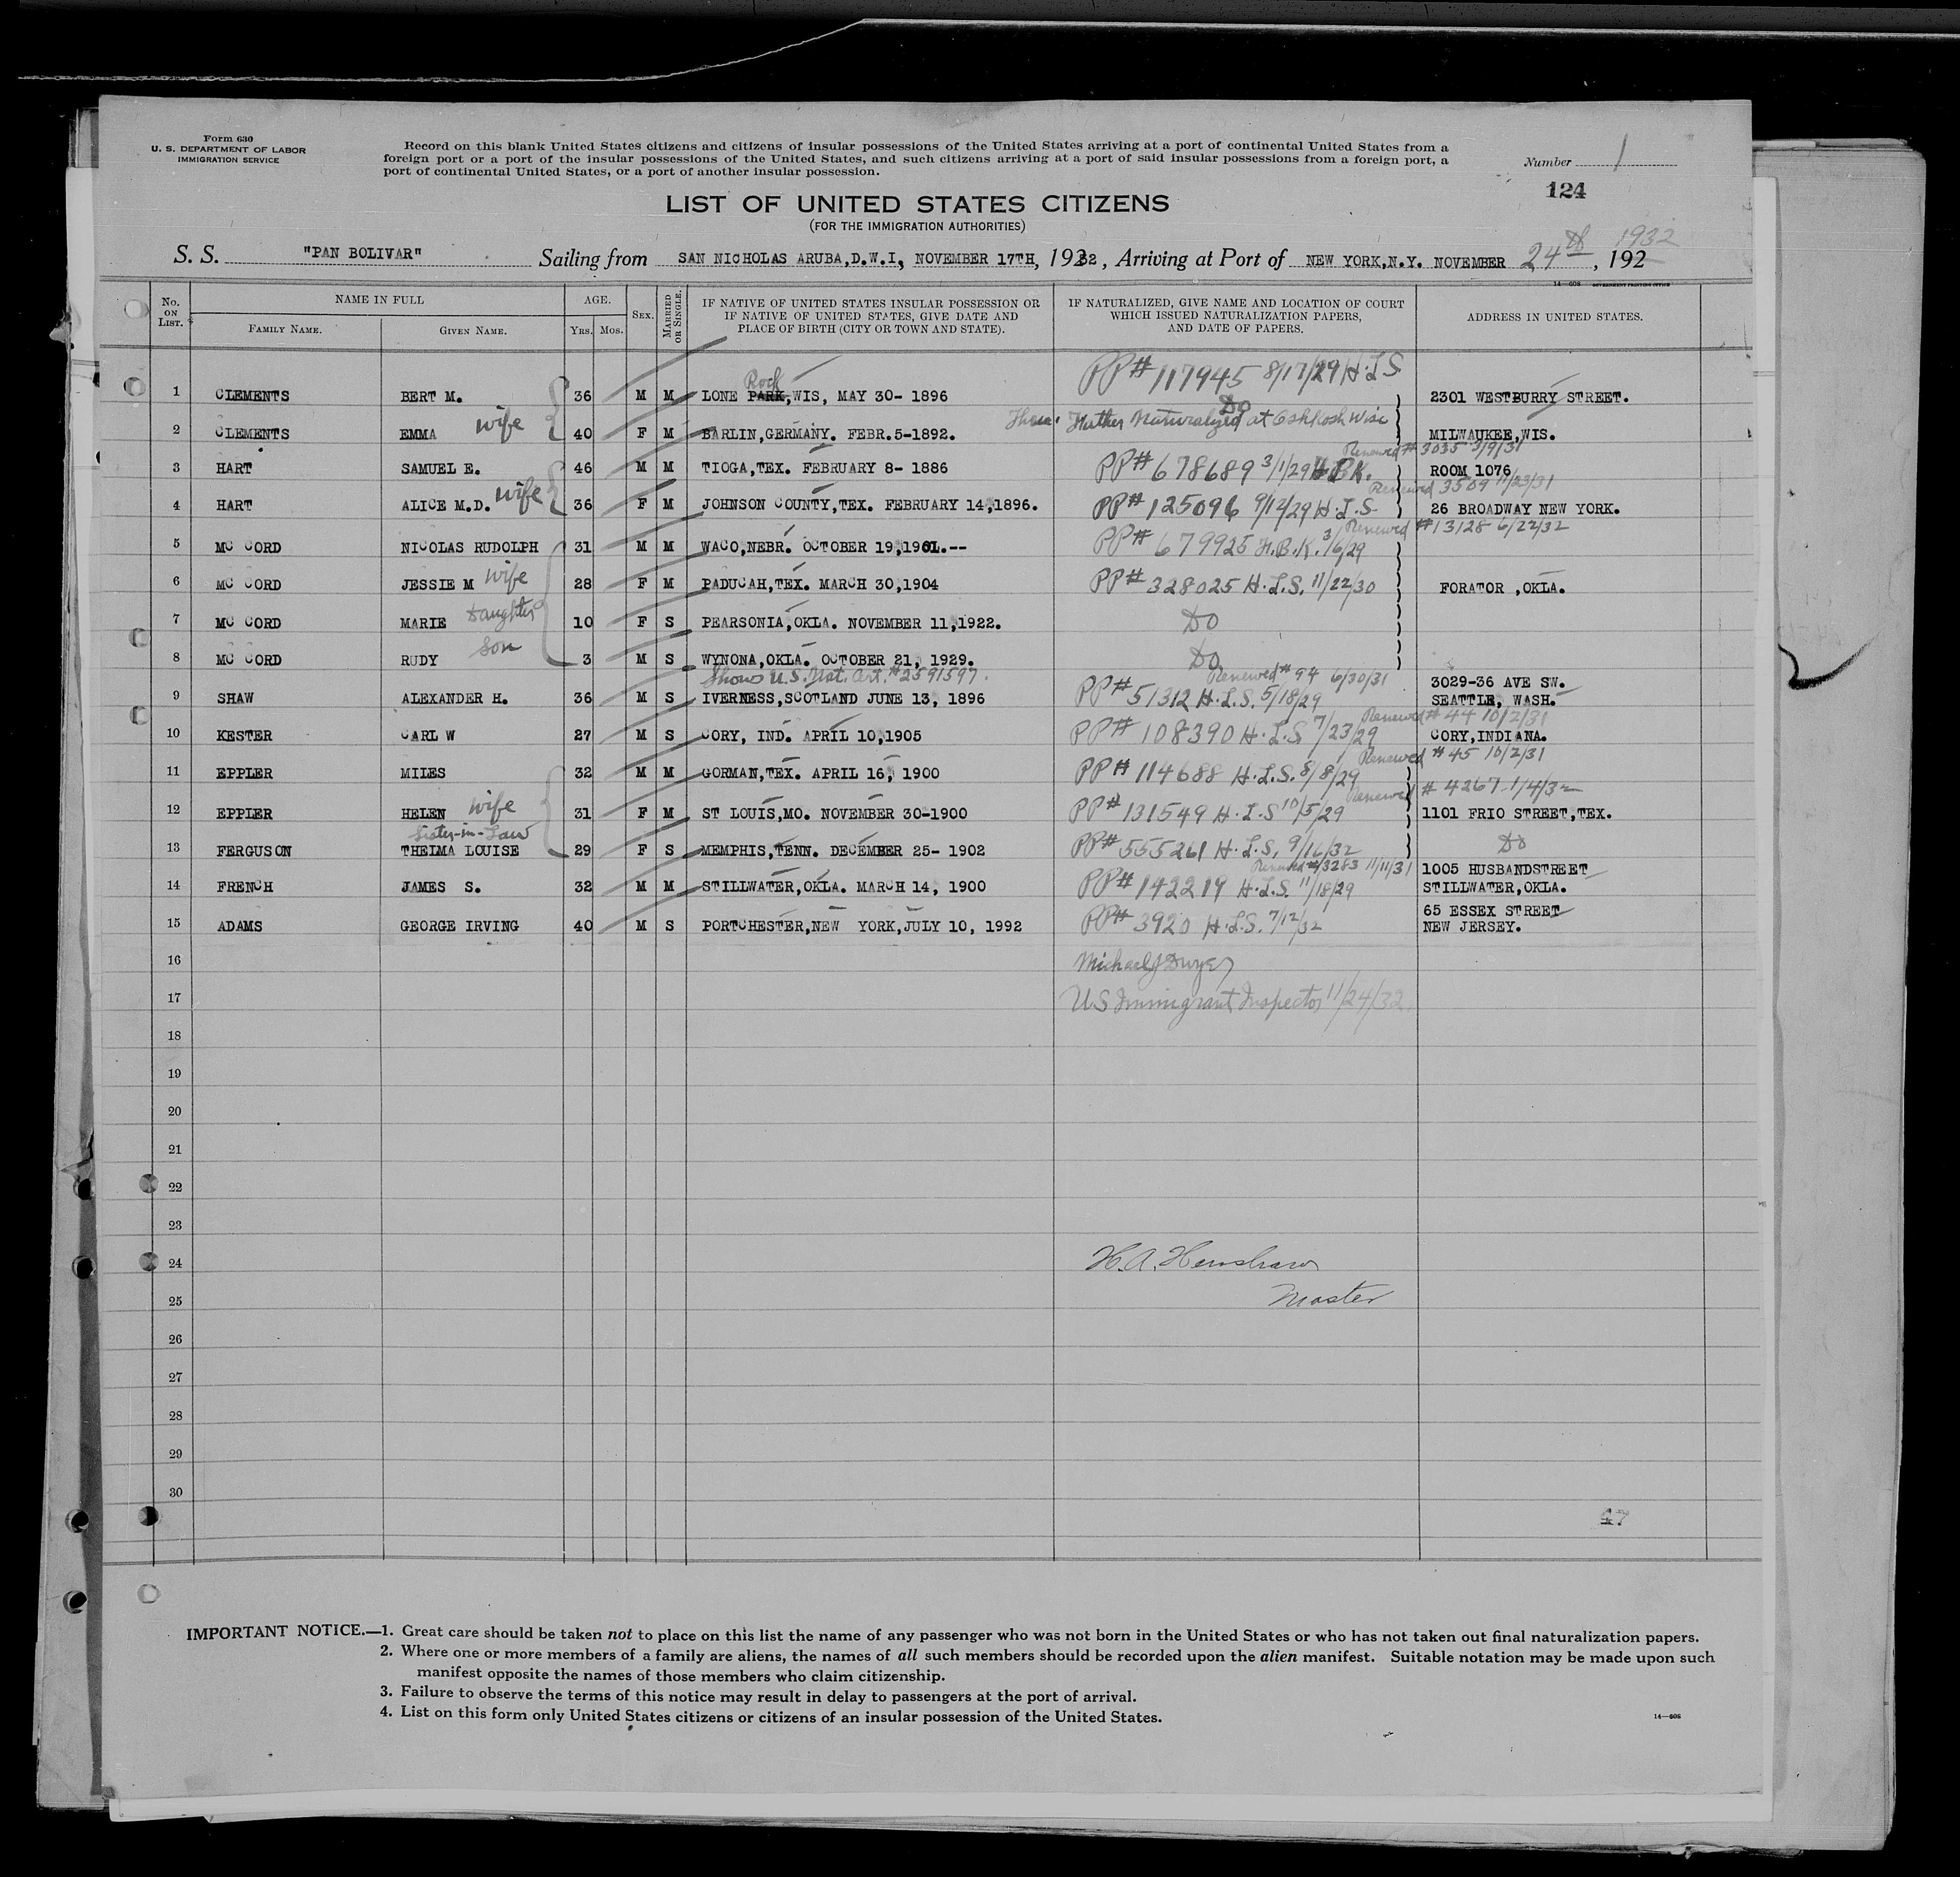 Form 630
U. S. DEPARTMENT OF LABOR
IMMIGRATION SERVICE
Record on this blank United States citizens and citizens of insular possessions of the United States arriving at a port of continental United States from a
foreign port or a port of the insular possessions of the United States, and such citizens arriving at a port of said insular possessions from a foreign port, a
port of continental United States, or a port of another insular possession.
Number 1
124
LIST OF UNITED STATES CITIZENS
(FOR THE IMMIGRATION AUTHORITIES)
S. S. "PAN BOLIVAR" Sailing from SAN NICHOLAS ARUBA,D.W.I, NOVEMBER 17TH, 1932, Arriving at Port of NEW YORK,N.Y. NOVEMBER 24th, 192 1932
14—608 GOVERNMENT PRINTING OFFICE
No. ON LIST. NAME IN FULL AGE. SEX. MARRIED OR SINGLE. IF NATIVE OF UNITED STATES INSULAR POSSESSION OR IF NATIVE OF UNITED STATES, GIVE DATE AND PLACE OF BIRTH (CITY OR TOWN AND STATE). IF NATURALIZED, GIVE NAME AND LOCATION OF COURT WHICH ISSUED NATURALIZATION PAPERS, AND DATE OF PAPERS. ADDRESS IN UNITED STATES.
FAMILY NAME. GIVEN NAME. YRS. MOS.
Rock
1 CLEMENTS BERT M. 36 M M LONE PARK,WIS, MAY 30- 1896 PP# 117945 8/17/29 H.L.S 2301 WESTBURRY STREET.
Do
2 CLEMENTS EMMA wife 40 F M BARLIN,GERMANY. FEBR.5-1892. Father Naturalized at Oshkosh Wisc MILWAUKEE,WIS.
Renewed # 3035 3/9/31
3 HART SAMUEL E. 46 M M TIOGA,TEX. FEBRUARY 8- 1886 PP# 678689 3/1/29 H.B.K. ROOM 1076
Renewed 3509 11/23/31
4 HART ALICE M.D. wife 36 F M JOHNSON COUNTY,TEX. FEBRUARY 14,1896. PP# 125096 9/12/29 H.L.S 26 BROADWAY NEW YORK.
Renewed #13128 6/22/32
5 MC CORD NICOLAS RUDOLPH 31 M M WACO,NEBR. OCTOBER 19,1901.-- PP# 679925 H.B.K. 3/6/29
6 MC CORD JESSIE M wife 28 F M PADUCAH,TEX. MARCH 30,1904 PP# 328025 H.L.S. 11/22/30 FORATOR ,OKLA.
7 MC CORD MARIE Daughter 10 F S PEARSONIA,OKLA. NOVEMBER 11,1922. Do
8 MC CORD RUDY son 3 M S WYNONA,OKLA. OCTOBER 21, 1929. Do
Shows U.S. Nat. Crt. #2591597. Renewed # 94 6/30/31 3029-36 AVE SW.
9 SHAW ALEXANDER H. 36 M S IVERNESS,SCOTLAND JUNE 13, 1896 PP# 51312 H.L.S. 5/18/29 SEATTLE, WASH.
Renewed # 44 10/2/31
10 KESTER CARL W 27 M S CORY, IND. APRIL 10,1905 PP# 108390 H.L.S 7/23/29 CORY,INDIANA.
Renewed # 45 10/2/31
11 EPPLER MILES 32 M M GORMAN,TEX. APRIL 16, 1900 PP# 114688 H.L.S. 8/8/29
Renewed # 4267-1/4/32
12 EPPLER HELEN wife 31 F M ST LOUIS,MO. NOVEMBER 30-1900 PP# 131549 H.L.S 10/5/29 1101 FRIO STREET,TEX.
Sister-in-Law
13 FERGUSON THELMA LOUISE 29 F S MEMPHIS,TENN. DECEMBER 25- 1902 PP# 555261 H.L.S. 9/16/32 Do
Renewed #3283 11/11/31 1005 HUSBANDSTREET
14 FRENCH JAMES S. 32 M M STILLWATER,OKLA. MARCH 14, 1900 PP# 142219 H.L.S. 11/18/29 STILLWATER,OKLA.
65 ESSEX STREET
15 ADAMS GEORGE IRVING 40 M S PORTCHESTER,NEW YORK,JULY 10, 1992 PP# 3920 H.L.S. 7/12/32 NEW JERSEY.
16 Michael J Dwyer
17 US Immigrant Inspector 11/24/32
18
19
20
21
22
23
24 H.A. Henshaw
25 Master
26
27
28
29
30
47
IMPORTANT NOTICE.—1. Great care should be taken not to place on this list the name of any passenger who was not born in the United States or who has not taken out final naturalization papers.
2. Where one or more members of a family are aliens, the names of all such members should be recorded upon the alien manifest. Suitable notation may be made upon such
manifest opposite the names of those members who claim citizenship.
3. Failure to observe the terms of this notice may result in delay to passengers at the port of arrival.
4. List on this form only United States citizens or citizens of an insular possession of the United States.
14—608